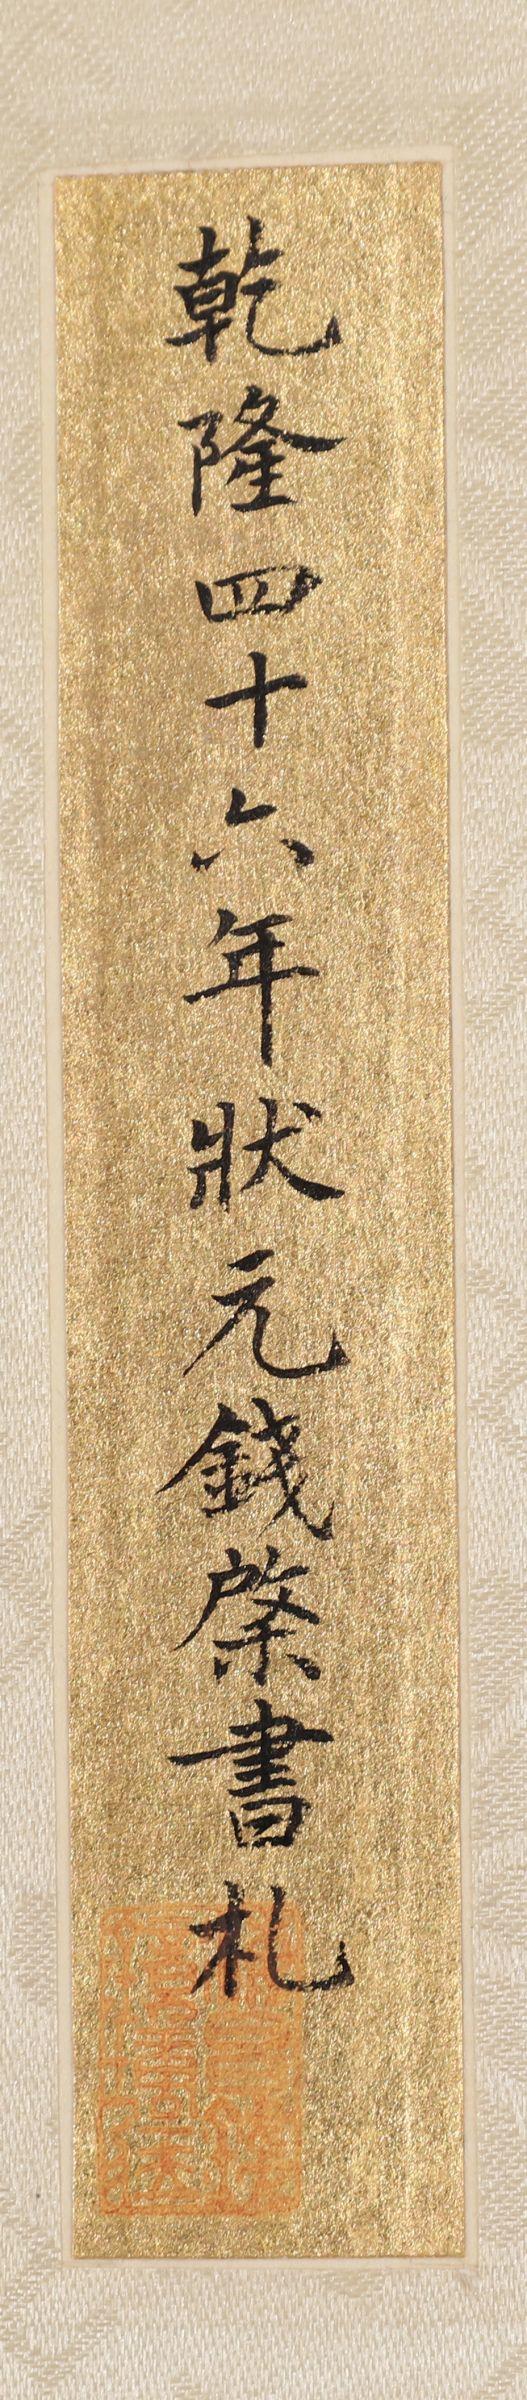 乾隆四十六年狀元錢棨書札